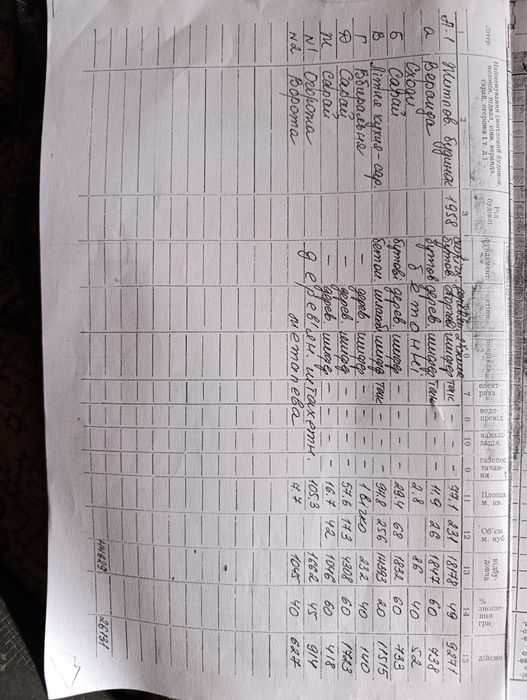 Літер | Найменування (житловий будинок, мезонін, підвал, сіни, веранда, сарай, огорожа і т. д.) | Рік будівлі | фундамент | стіни | покрівля | електрика | водопровід | каналізація | газопостачання | Площа м. кв. | Об'єм м. куб. | відбудівна | % зношення грн | дійсно
1 | 2 | 3 | 6 | 7 | 8 | 10 | 9 | 11 | 12 | 13 | 14 | 15
А-1 Житлов будинок 1958 бутов шифер так - - - 77.1 231 18778 49 9271
а Веранда бутов дерев. шифер так - - - 11.9 26 1847 60 738
Сходи бетонні 2.8 86 40 52
Б Сарай бутов дерев шифр - - - - 29.4 68 1832 60 733
В Літня кухня-сар. бетон. шлакоб шифр так - - - 94.8 256 14393 20 11515
Г Вбиральня - дерев. шифр - - - - 1 232 40 140
Д Сарай - дерев. шифр - - - - 57.6 173 4308 60 1723
Ж Сарай - дерев шифр - - - - 16.7 42 1046 60 418
N1 Огорожа дерев'ян. штахетн. 105.3 1662 45 914
N2 Ворота металева 7.7 1045 40 627
44629 26131